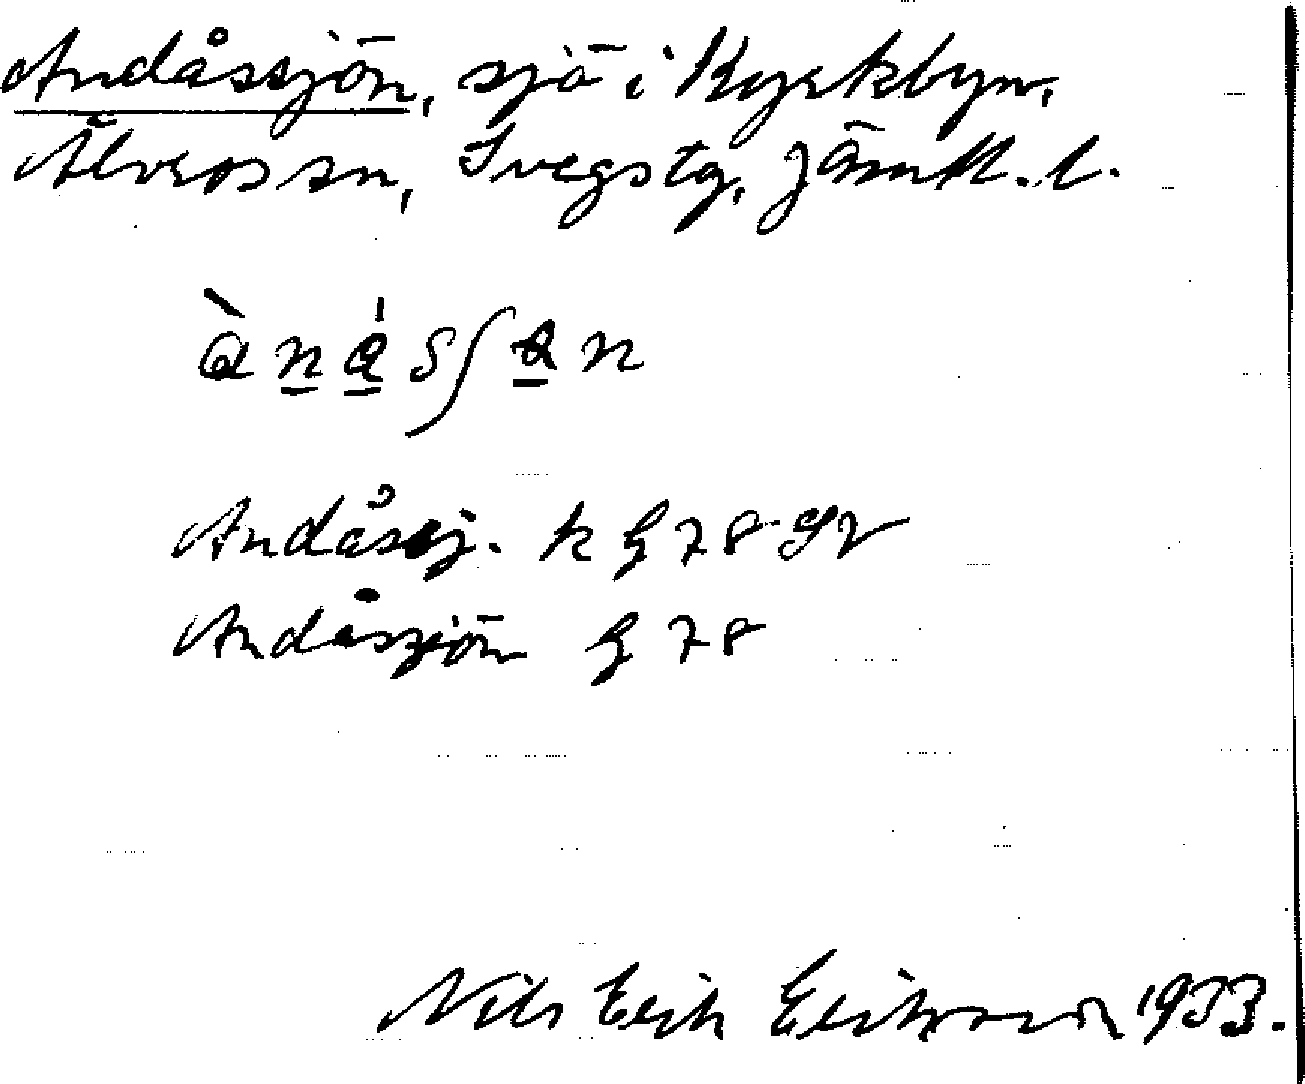 Andåssjön, sjö i Kyrkbyn,
Älvros sn, Svegs tg, Jämtl. l.
Andåssj. k G 78 SV
Andåssjön G 78
Nils Erik Eriksson 1933.